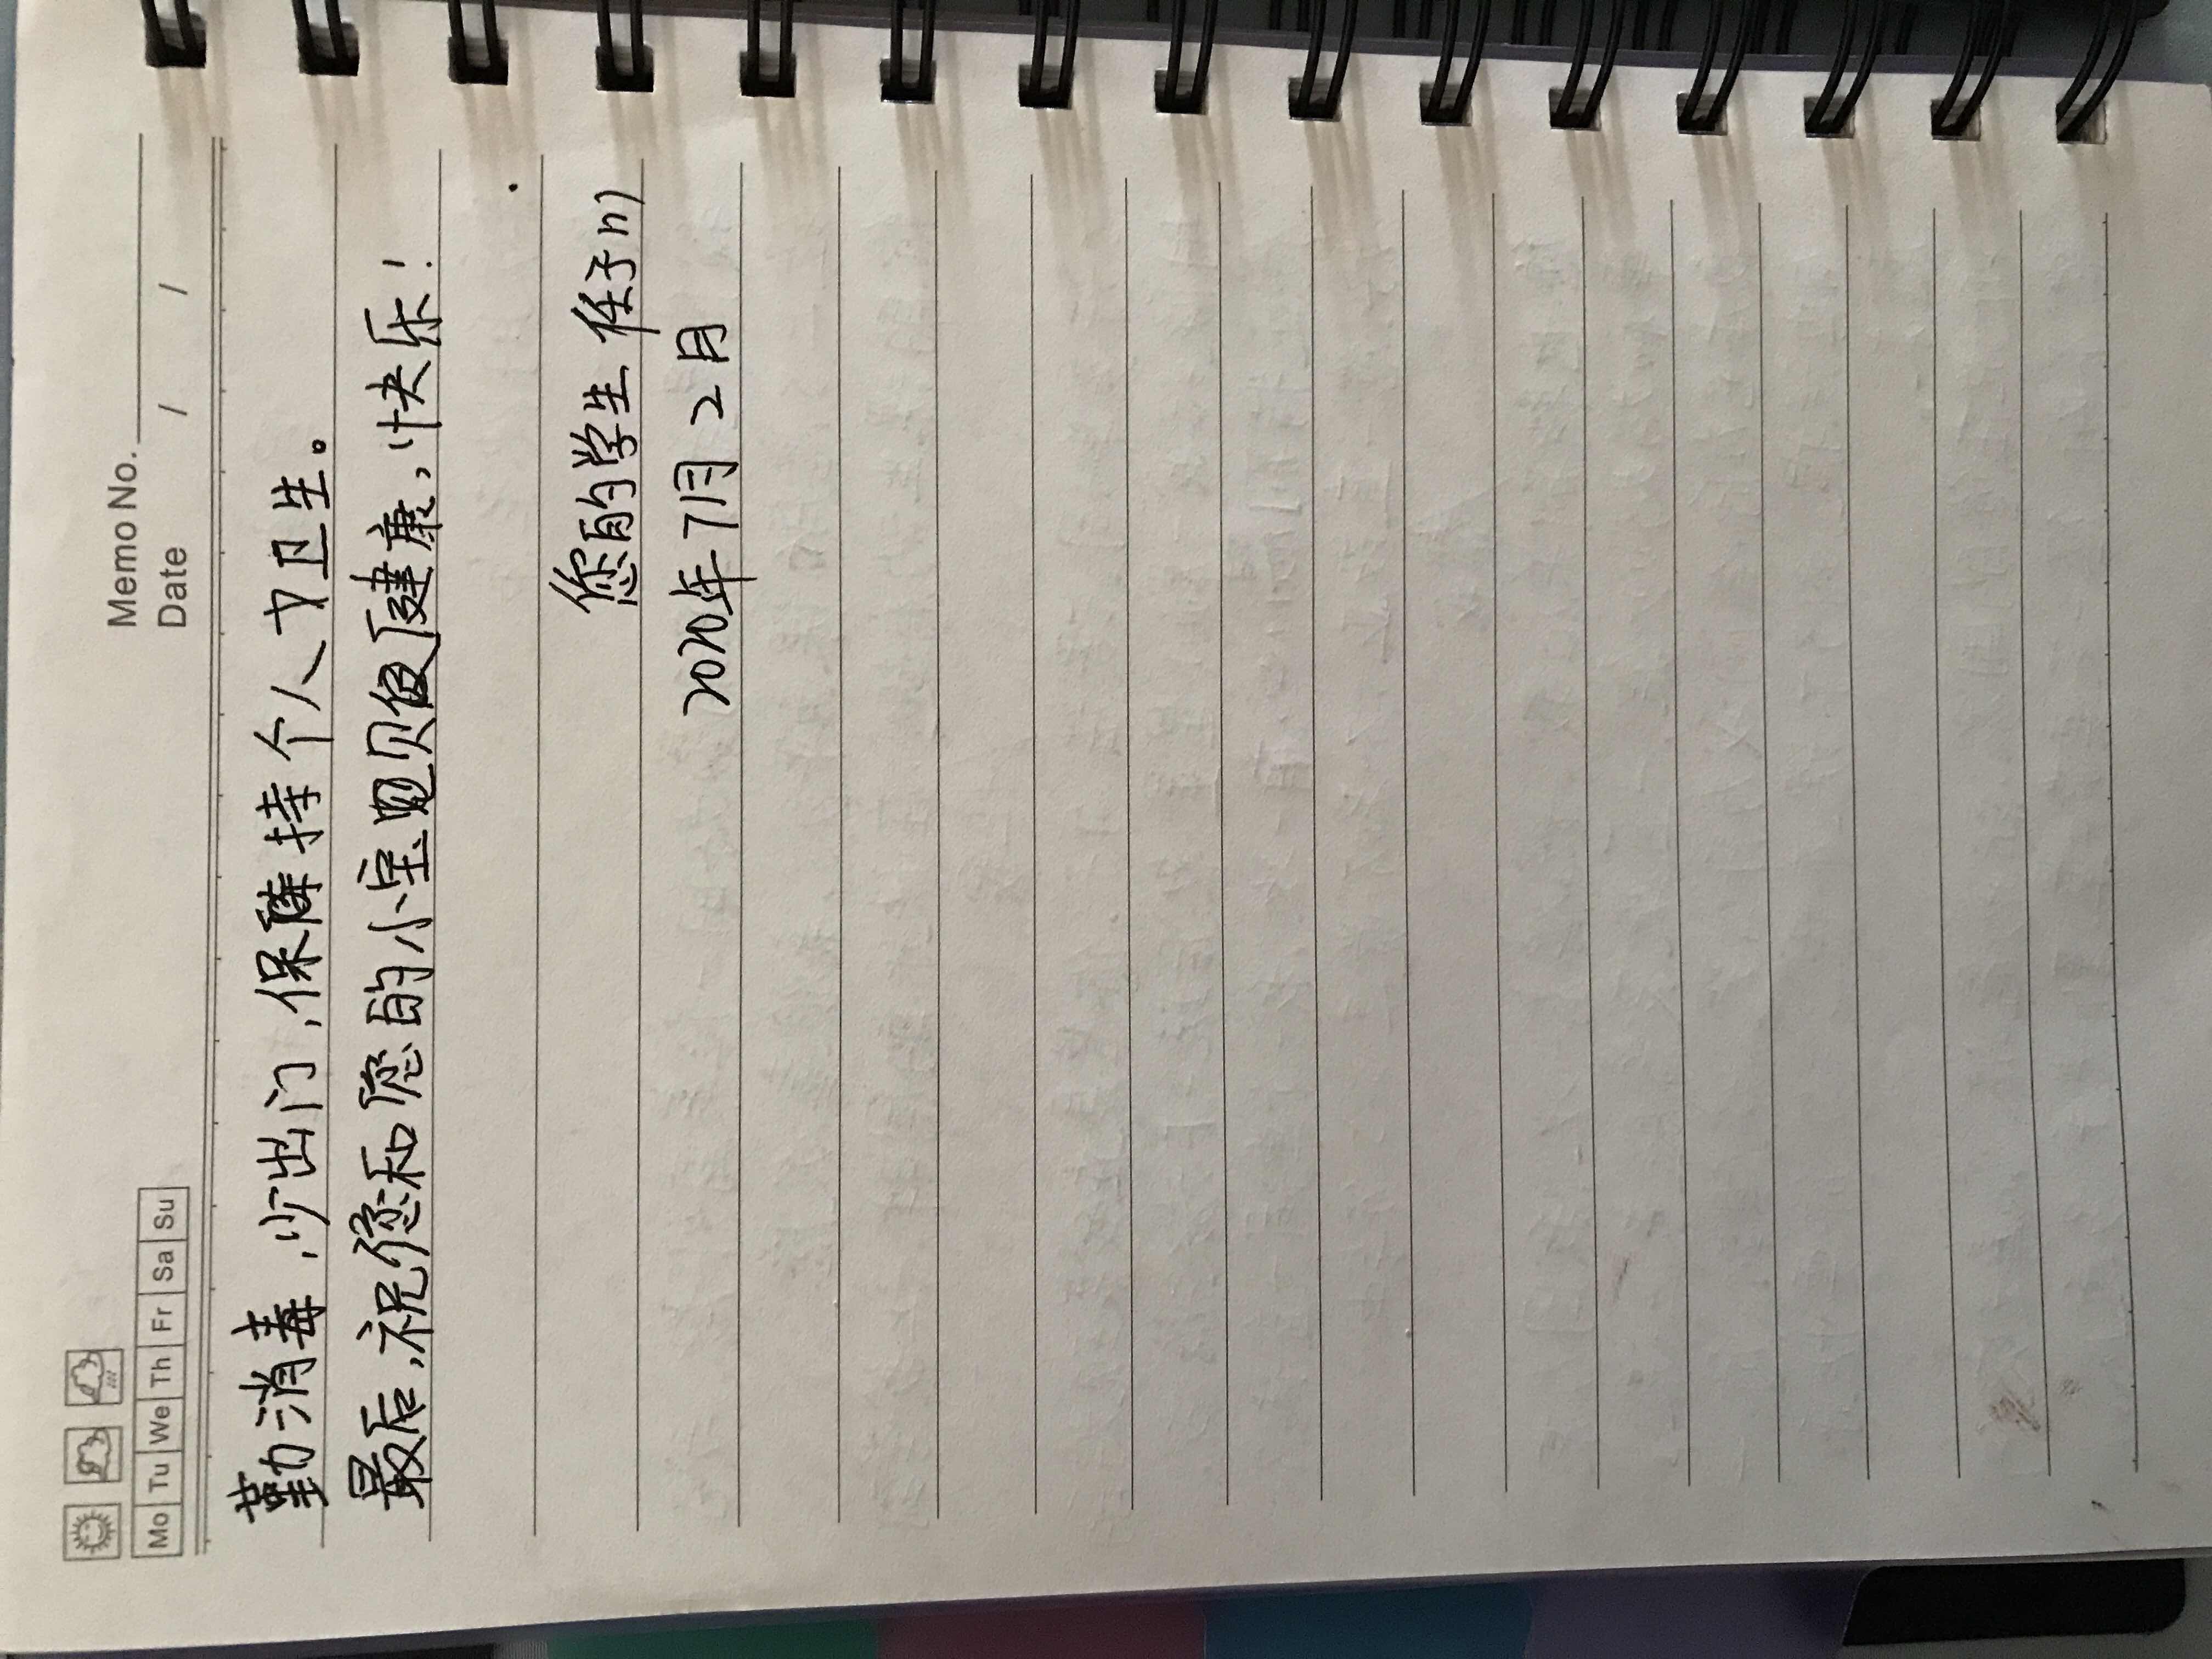 Memo No.
Mo Tu We Th Fr Sa Su
Date / /
勤消毒,少出门,保持个人卫生。
最后,祝您和您的小宝贝健康,快乐!
您的学生 任子
2020年7月2日